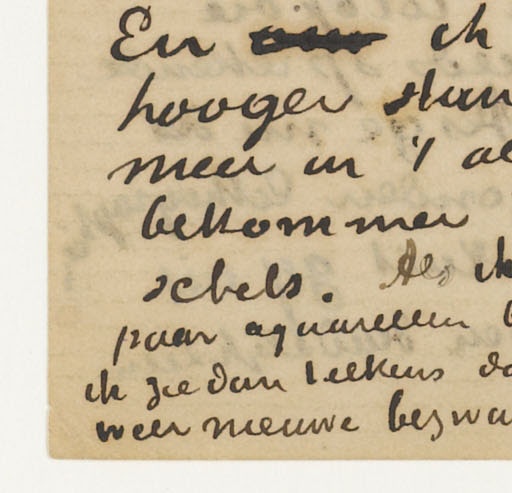 En ik
hooger
meer in 't
bekommer
schels. Als ik
paar aquarellen
ik zie dan telkens
weer nieuwe bezwa